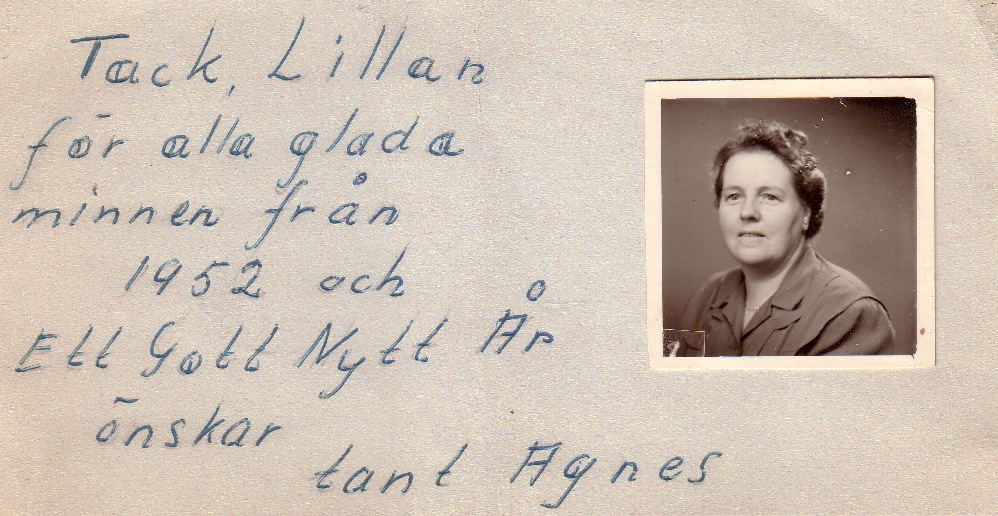 Tack, Lillan
för alla glada
minnen från
1952 och
Ett Gott Nytt År
önskar
tant Agnes